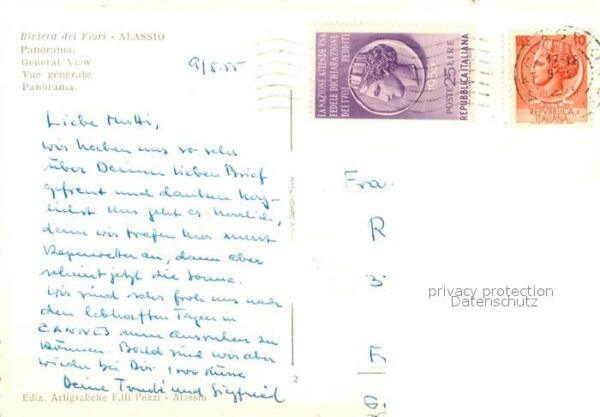 Riviera dei Fiori - ALASSIO
Panorama.
General View.
Vue générale.
Panorama.
9/5.55
Liebe Mutti,
wir haben uns so sehr
über Deinen lieben Brief
gefreut und danken herz-
lichst. Uns geht es herrlich,
denn wir trafen hier zuerst
Regenwetter an, dann aber
scheint jetzt die Sonne.
Wir sind sehr froh uns nach
den lebhaften Tagen in
CANNES nun ausruhen zu
können. Bald sind wir aber
wieder bei Dir. 1000 Küsse
Deine Trudi und Siegfried
Ediz. Artigrafiche F.lli Pozzi - Alassio
2
LA NAZIONE ATTENDE UNA
FEDELE DICHIARAZIONE
DEI TUOI REDDITI
POSTE 25 LIRE
REPUBBLICA ITALIANA
10
REPUBBLICA
ITALIANA
Fra.
R
3.
F
privacy protection
Datenschutz